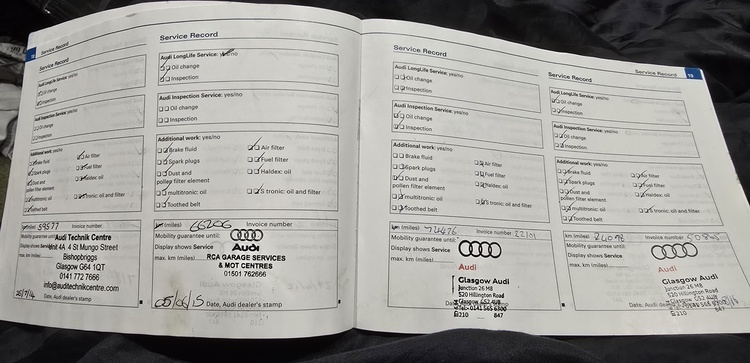 Service Record
Audi LongLife Service: yes/no
Oil change
Inspection
Audi Inspection Service: yes/no
Oil change
Inspection
Additional work: yes/no
Brake fluid
Air filter
Spark plugs
Fuel filter
Dust and
pollen filter element
Haldex: oil
multitronic: oil
S tronic: oil and filter
Toothed belt
km (miles) 59577 Invoice number
Mobility guarantee until:
Display shows Service
max. km (miles)
Audi Technik Centre
Unit 4A 4 St Mungo Street
Bishopbriggs
Glasgow G64 1QT
0141 772 7666
info@auditechnikcentre.com
Date, Audi dealer's stamp
Service Record
Audi LongLife Service: yes/no
Oil change
Inspection
Audi Inspection Service: yes/no
Oil change
Inspection
Additional work: yes/no
Brake fluid
Air filter
Spark plugs
Fuel filter
Dust and
pollen filter element
Haldex: oil
multitronic: oil
S tronic: oil and filter
Toothed belt
km (miles) 66206 Invoice number
Mobility guarantee until:
Display shows Service
max. km (miles)
Audi
RCA GARAGE SERVICES
& MOT CENTRES
01501 752666
05/06/15 Date, Audi dealer's stamp
Service Record
Audi LongLife Service: yes/no
Oil change
Inspection
Audi Inspection Service: yes/no
Oil change
Inspection
Additional work: yes/no
Brake fluid
Air filter
Spark plugs
Fuel filter
Dust and
pollen filter element
Haldex: oil
multitronic: oil
S tronic: oil and filter
Toothed belt
km (miles) 74476 Invoice number
Mobility guarantee until:
Display shows Service
max. km (miles)
Audi
Glasgow Audi
Junction 26 M8
520 Hillington Road
Glasgow G52 4UB
Tel: 0141 565 6300
210 847
Service Record
Service Record 19
Audi LongLife Service: yes/no
Oil change
Inspection
Audi Inspection Service: yes/no
Oil change
Inspection
Additional work: yes/no
Brake fluid
Air filter
Spark plugs
Fuel filter
Dust and
pollen filter element
Haldex: oil
multitronic: oil
S tronic: oil and filter
Toothed belt
km (miles) Invoice number
Mobility guarantee until:
Display shows Service
max. km (miles)
Audi
Glasgow Audi
Junction 26 M8
520 Hillington Road
Glasgow G52 4UB
210 847